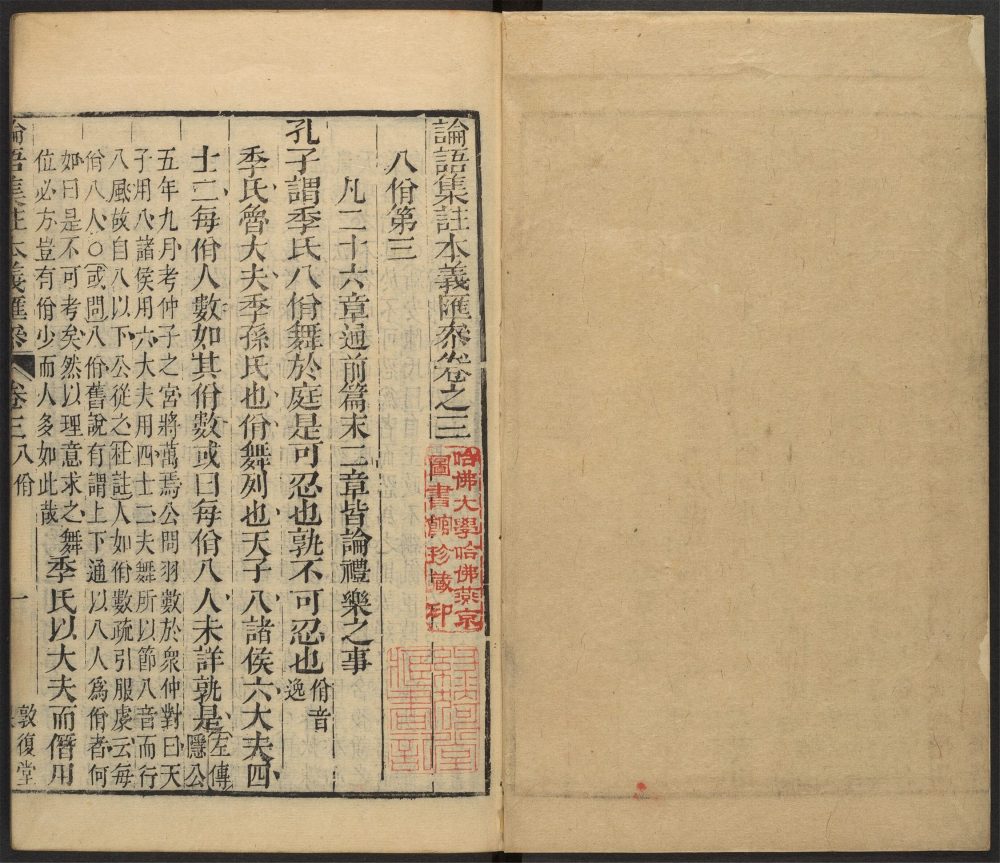 論語集註本義匯叅卷之三
八佾第三
凡二十六章通前篇末二章皆論禮樂之事
孔子謂季氏八佾舞於庭是可忍也孰不可忍也
佾音
逸
季氏魯大夫季孫氏也佾舞列也天子八諸侯六大夫四
士二每佾人數如其佾數或曰每佾八人未詳孰是
左傳
隱公
五年九月考仲子之宮將萬焉公問羽數於衆仲對曰天
子用八諸侯用六大夫用四士二夫舞所以節八音而行
八風故自八以下公從之
註人如佾數疏引服虔云每
佾八人○或問八佾舊說有謂上下通以八人爲佾者何
如曰是不可考矣然以理意求之舞
位必方豈有佾少而人多如此哉
季氏以大夫而僭用
論語集註本義匯叅
卷三八佾
一
敦復堂
哈佛大學哈佛燕京
圖書館珍藏印